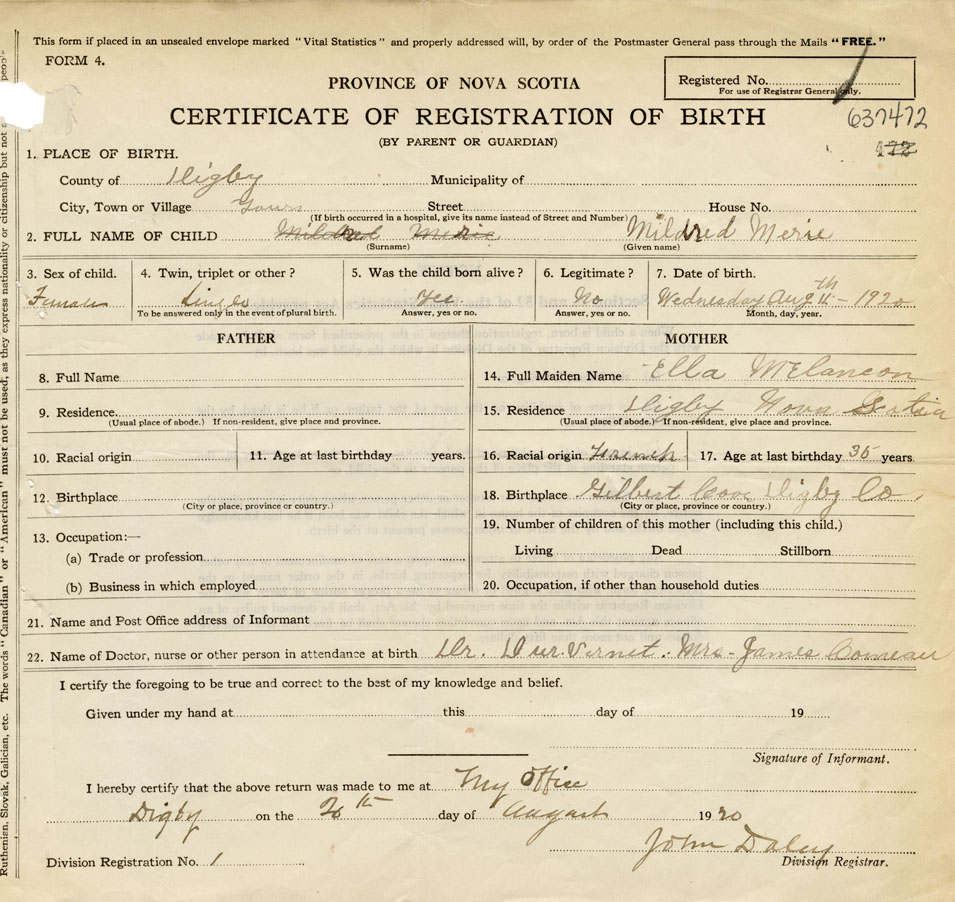 This form if placed in an unsealed envelope marked "Vital Statistics" and properly addressed will, by order of the Postmaster General pass through the Mails "FREE."
FORM 4.
PROVINCE OF NOVA SCOTIA
Registered No.
For use of Registrar General only.
CERTIFICATE OF REGISTRATION OF BIRTH
637472
(BY PARENT OR GUARDIAN)
1. PLACE OF BIRTH.
County of Digby Municipality of
City, Town or Village Town Street House No.
(If birth occurred in a hospital, give its name instead of Street and Number)
2. FULL NAME OF CHILD Mildred Merie Mildred Merie
(Surname) (Given name)
3. Sex of child. 4. Twin, triplet or other? 5. Was the child born alive? 6. Legitimate? 7. Date of birth.
Female Single Yes No Wednesday Aug 11th - 1920
To be answered only in the event of plural birth. Answer, yes or no. Answer, yes or no. Month, day, year.
FATHER MOTHER
8. Full Name 14. Full Maiden Name Ella Melancon
9. Residence. 15. Residence Digby Nova Scotia
(Usual place of abode.) If non-resident, give place and province. (Usual place of abode.) If non-resident, give place and province.
10. Racial origin 11. Age at last birthday years. 16. Racial origin French 17. Age at last birthday 35 years
12. Birthplace 18. Birthplace Gilbert Cove Digby Co.
(City or place, province or country.) (City or place, province or country.)
13. Occupation:— 19. Number of children of this mother (including this child.)
(a) Trade or profession Living Dead Stillborn
(b) Business in which employed 20. Occupation, if other than household duties
21. Name and Post Office address of Informant
22. Name of Doctor, nurse or other person in attendance at birth Dr. DuVernet. Mrs - James Comeau
I certify the foregoing to be true and correct to the best of my knowledge and belief.
Given under my hand at this day of 19
Signature of Informant.
I hereby certify that the above return was made to me at My Office
Digby on the th day of August 1920
John Daley
Division Registration No. 1 Division Registrar.
Ruthenian, Slovak, Galician, etc. The words "Canadian" or "American" must not be used, as they express nationality or citizenship but not a peop